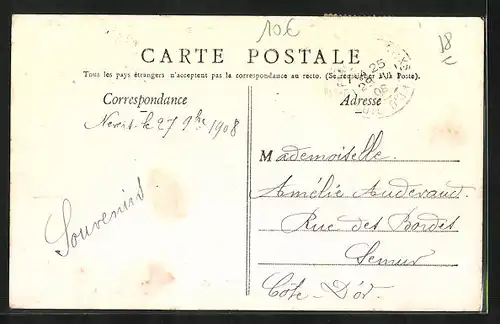 10€
18
€
CARTE POSTALE
Tous les pays étrangers n'acceptent pas la correspondance au recto. (Se renseigner à la Poste).
Correspondance
Adresse
le 27 9bre 1908
Souvenirs
Mademoiselle
Amélie
Rue des Bordes
Semur
Côte-D'or.